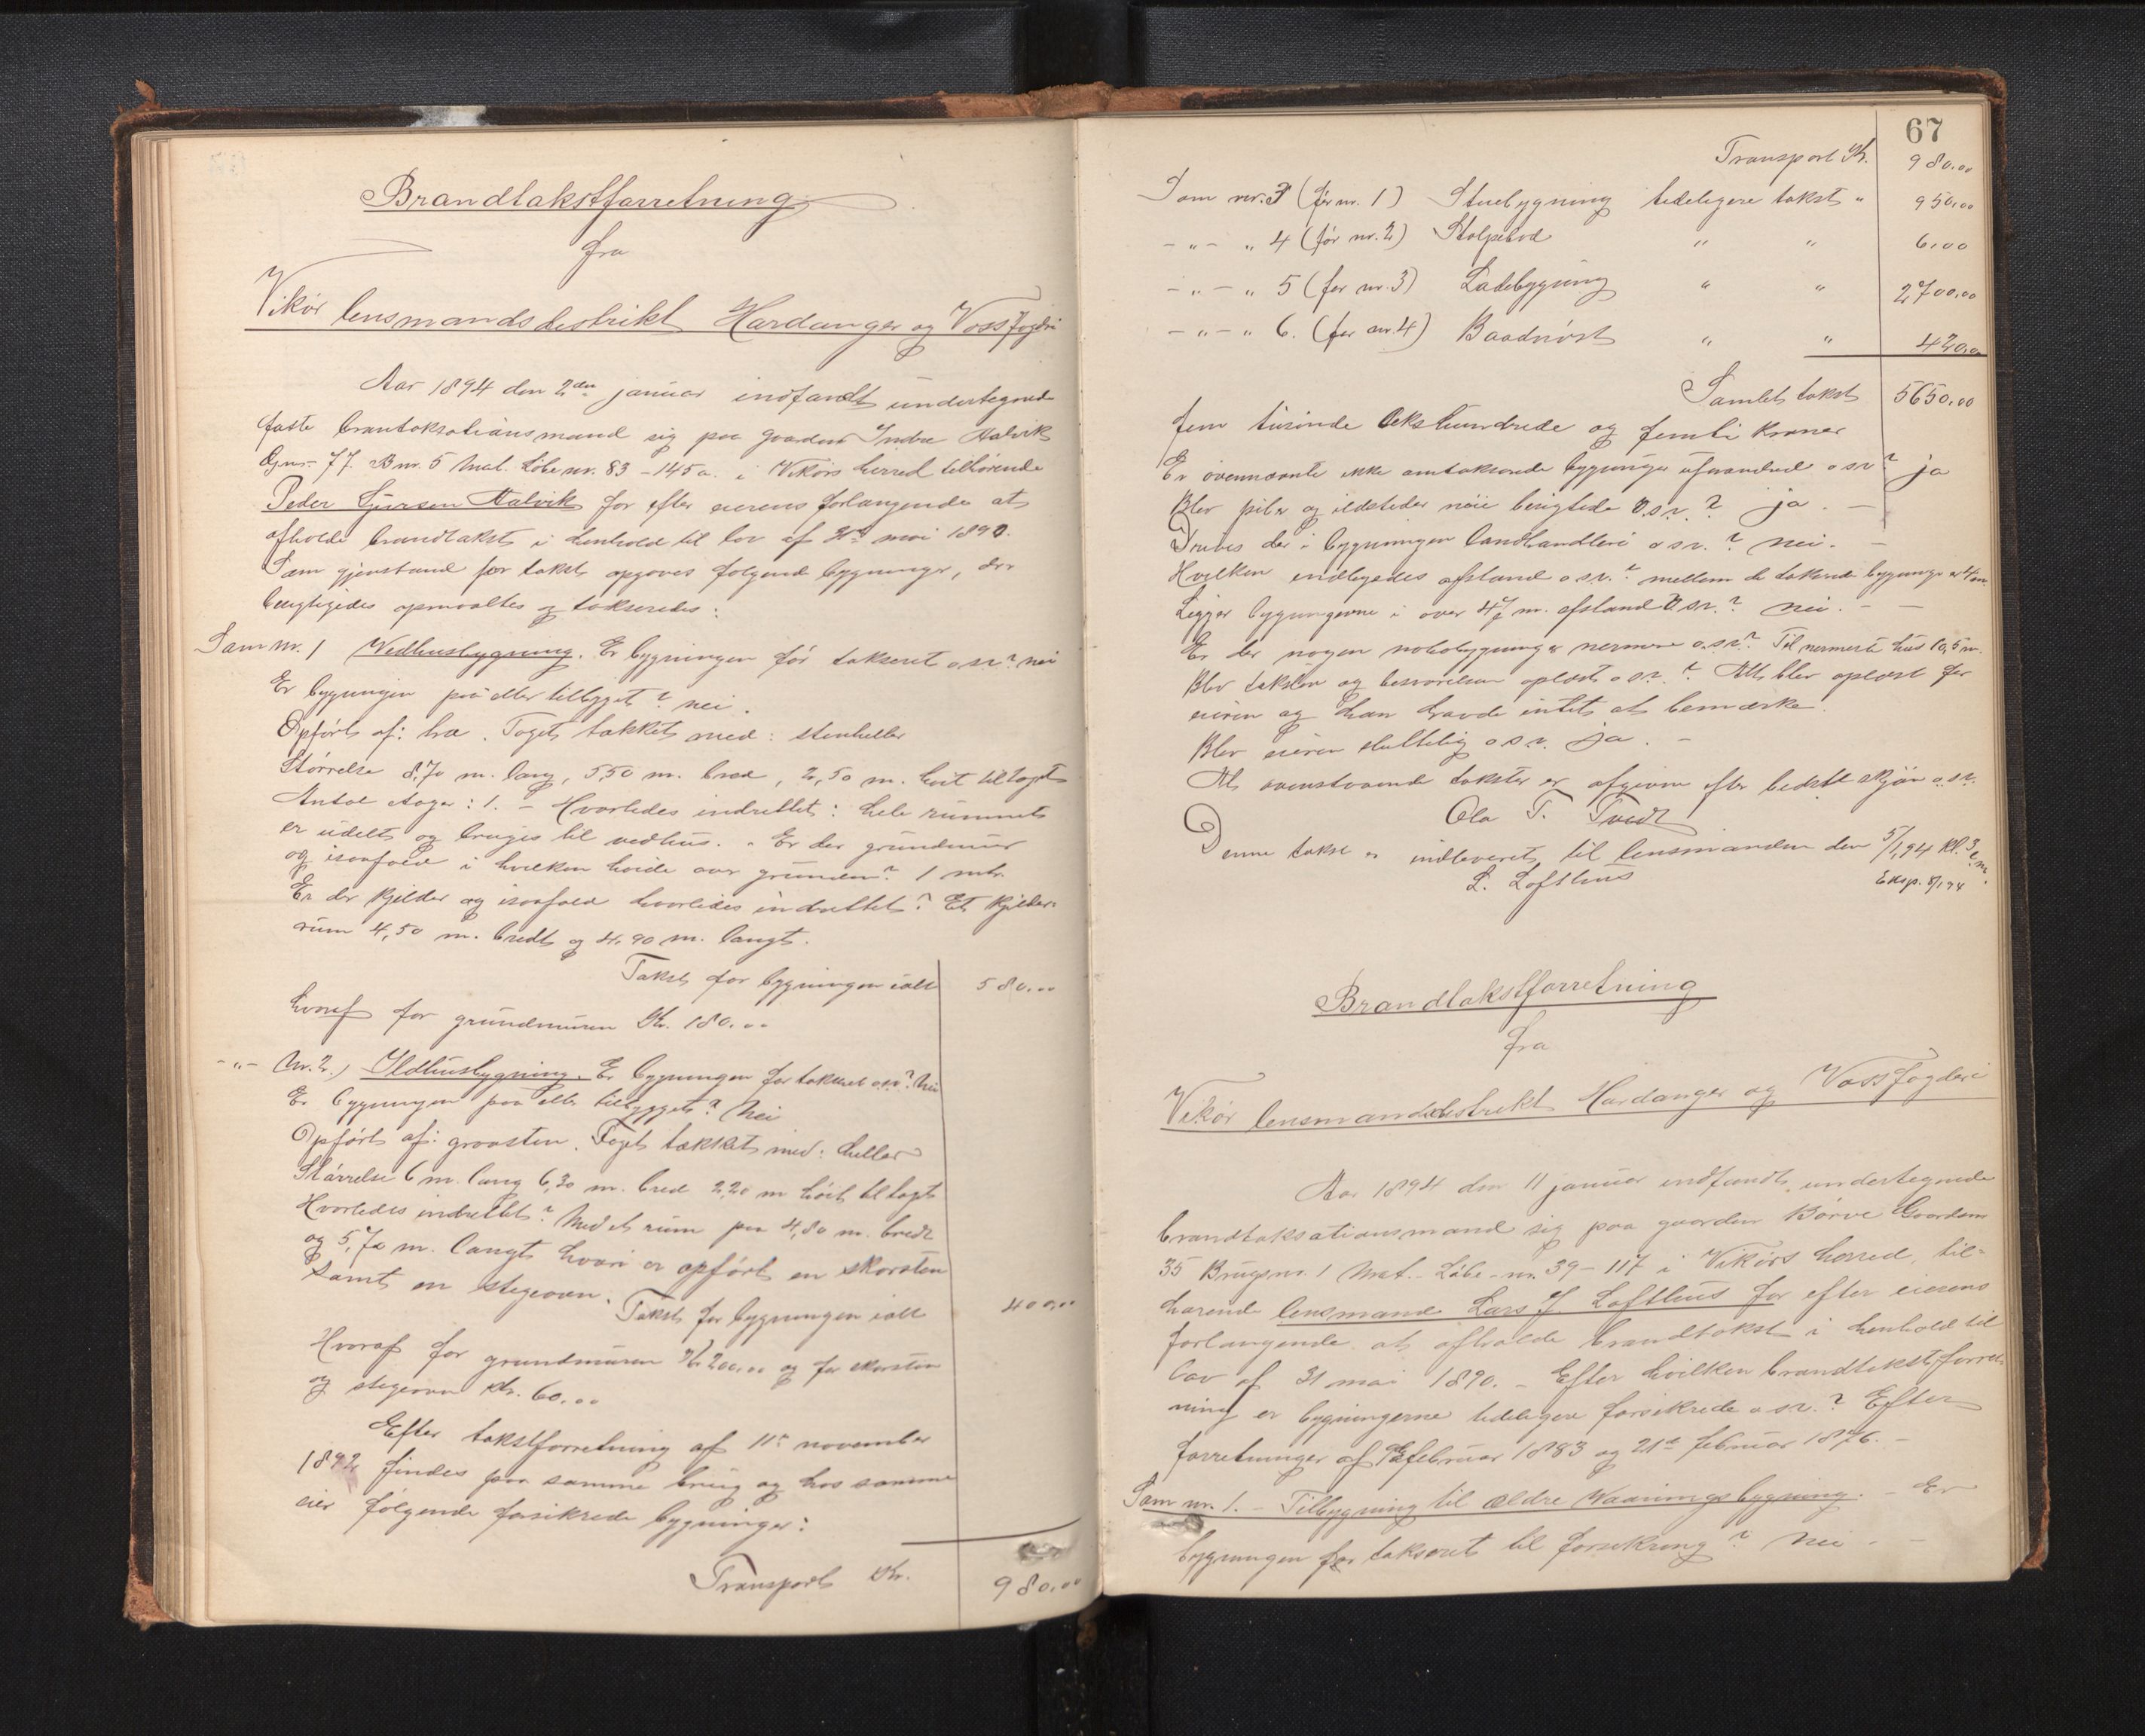 Brandtakstforretning
fra
Vikør lensmandsdistrikt Hardanger og Voss Fogderi
Aar 1894 den 2den januar indfandt undertegnede
faste brantaksationsmand sig paa gaarden Indre Aalvik
Gnr. 77 Bnr. 5 Mat. Løbe nr. 83 - 145a. i Vikørs herred tilhørende
Peder Sjursen Aalvik for efter eierens forlangende at
afholde brandtakst i henhold til lov af 31te mai 1890.
Som gjenstand for takst opgaves følgende bygninger, der
besigtigedes opmaaltes og takseredes:
Som nr. 1 Vedhusbygning. Er bygningen før takseret o s v? nei
Er bygningen paa eller tilbygget? nei.
Opført af: træ. Taget tækket med: stenheller
Størrelse 8,70 m. lang, 5,50 m. bred, 2,50 m. høit til taget
Antal etager: 1. - Hvorledes indrettet: hele rummet
er udelt og bruges til vedhus. - Er der grundmur
og isaafald i hvilken høide over grunden? 1 mtr.
Er der kjelder og isaafald hvorledes indrettet? Et kjelder-
rum 4,50 m. bredt og 4,90 m. langt.
Takst for bygningen ialt 580,00
hvoraf for grundmuren Kr. 180,00
-"- Nr. 2.) Ildhusbygning. Er bygningen før takseret o.s.v? Nei
Er bygningen paa eller tilbygget? Nei
Opført af: graasten. Taget tækket med: heller
Størrelse 6 m. lang 6,30 m. bred 2,20 m høit til taget
Hvorledes indrettet? Med et rum paa 4,80 m. bredt
og 5,70 m. langt hvori er opført en skorsten
samt en stegeovn.
Takst for bygningen ialt 400,00
Hvoraf for grundmuren Kr 200,00 og for skorsten
og stegeovn Kr. 60,00
Efter takstforretning af 11te november
1892 findes paa samme brug og hos samme
eier følgende forsikrede bygninger:
Transport Kr. 980,00
67
Transport Kr. 980,00
Som nr. 3 (før nr. 1) Stuebygning tideligere takst " 950,00
-"- " 4 (før nr. 2) Stolpebod " " 6,00
-"- " 5 (før nr. 3) Ladebygning " " 2700,00
-"- " 6. (før nr. 4) Baadnøst " " 420,00
Samlet takst 5650,00
Fem tusinde sekshundrede og femti kroner
Er ovennævnte ikke omtakserede bygninger uforandred o s v? ja
Blev piber og ildsteder nøie besigtede o.s.v.? ja. -
Drives der i bygningen landhandleri o s v.? nei. -
Hvilken indbyrdes afstand o s.v.? mellem de takserede bygninger er 4 m.
Ligger bygningerne i over 47 m. afstand o sv.? nei. - -
Er der nogen nabobygninger nærmere o.s.v? Til nærmeste hus 10,5 m.
Blev taksten og besvarelsen oplæst o s v.? Alt blev oplæst for
eieren og han havde intet at bemærke.
Blev eieren sluttelig o s.v. ja. -
At ovenstaaende takster er afgivne efter bedste skjøn o.s.v.
Ola T. Tvedt
Denne takst er indleveret til lensmanden den 5/1 94 Kl. 3 e.m.
L. Lofthus Eksp. 8/1 94
Brandtakstforretning
fra
Vikør lensmandsdistrikt Hardanger og Voss Fogderi
Aar 1894 den 11 januar indfandt undertegnede
brandtaksationsmand sig paa gaarden Børve Gaardsnr
35 Brugsnr. 1 Mat.- Løbe-nr. 39 - 117 i Vikørs herred, til-
hørende lensmand Lars J. Lofthus for efter eierens
forlangende at afholde brandtakst i henhold til
lov af 31 mai 1890. - Efter hvilken brandtakstforret-
ning er bygningerne tideligere forsikrede o s v.? Efter
forretninger af februar 1883 og 21de februar 1876. -
Som nr. 1. - Tilbygning til ældre Vaaningsbygning. - Er
bygningen før takseret til forsikring? Nei. -